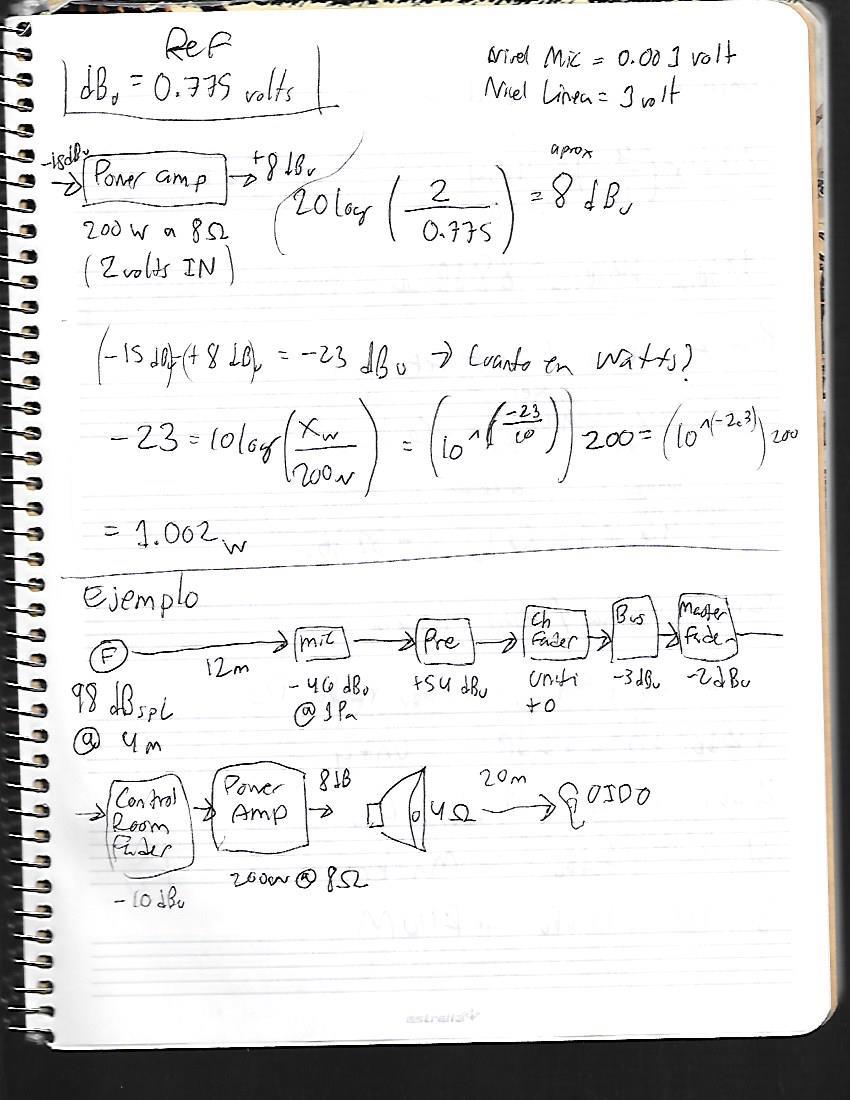 Ref
dBu = 0.775 volts
Nivel Mic = 0.001 volt
Nivel Linea = 1 volt
-15dBu → Power amp → +8 dBu
200 w a 8Ω
(2 volts IN)
20 log (2 / 0.775) = 8 dBu
aprox
(-15 dBu)-(+8 dBu) = -23 dBu → Cuanto en Watts?
-23 = 10 log (Xw / 200w) = (10^(-23/10)) 200 = (10^(-2.3)) 200
= 1.002 w
Ejemplo
F → 12m → mic → Pre → Ch Fader → Bus → Master Fader
98 dBspl @ 4m
-46 dBu @ 1Pa
+54 dBu
Uniti +0
-3dBu
-2dBu
→ Control Room Fader → Power AMP → 8dB
4Ω → 20m → OIDO
-10dBu
200w @ 8Ω
astralis